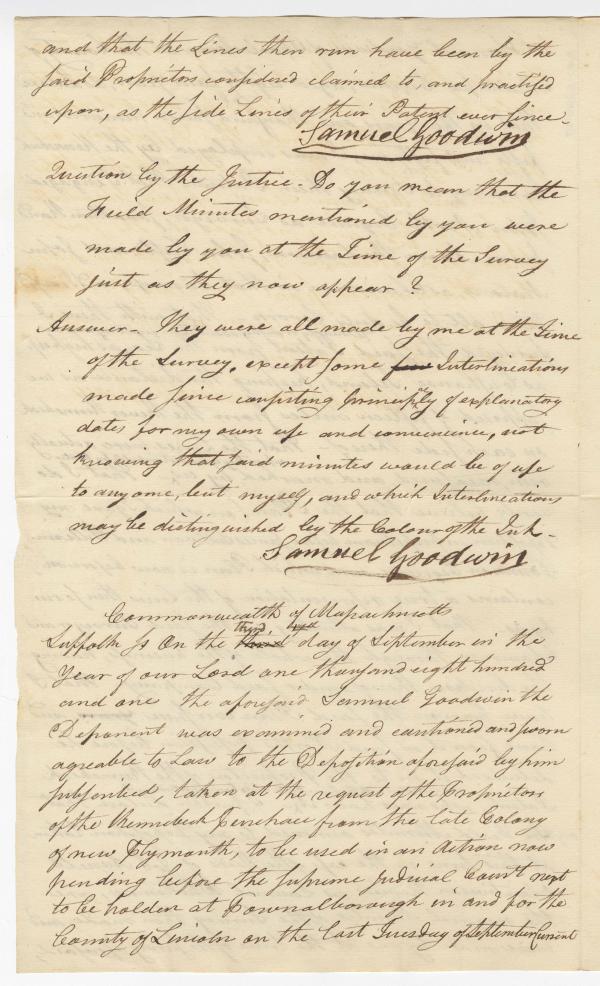 and that the Lines then run have been by the
said Proprietors considered claimed to, and practised
upon, as the side Lines of their Patent ever since.
Samuel Goodwin
Question by the Justice - Do you mean that the
Field Minutes mentioned by you were
made by you at the Time of the Survey
just as they now appear?
Answer - They were all made by me at the Time
of the Survey, except some few Interlineations
made since consisting principally of explanatory
dates for my own use and convenience, not
knowing that said minutes would be of use
to any one, but myself, and which Interlineations
may be distinguished by the Colour of the Ink -
Samuel Goodwin
Commonwealth of Massachusetts
third
Suffolk Ss On the third day of September in the
Year of our Lord one thousand eight hundred
and one the aforesaid Samuel Goodwin the
Deponent was examined and cautioned and sworn
agreable to Law to the Deposition aforesaid by him
subscribed, taken at the request of the Proprietors
of the Kennebeck Purchace from the late Colony
of new Plymouth, to be used in an Action now
pending before the supreme Judicial Court next
to be holden at Pownalborough in and for the
County of Lincoln on the last Tuesday of September Current